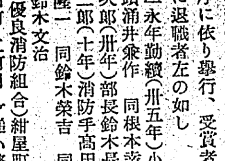 月に依り擧行、受賞者
に退職者左の如し
一永年勤續(卅五年)小
頭涌井兼作　同根本
次郎(卅年)部長鈴木長
一郎(十年)消防手高田
隆一　同鈴木榮吉　同
鈴木文治
優良消防組合)紺屋町